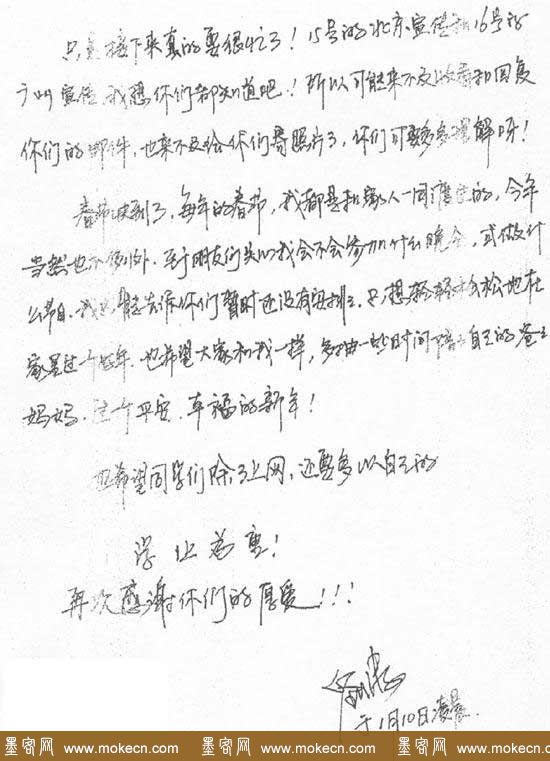 只是接下来真的要很忙了！15号的北京宣传和16号的
广州宣传，我想你们都知道吧！所以可能来不及收看和回复
你们的邮件，也来不及给你们寄照片了，你们可要多多理解呀！
春节快到了，每年的春节，我都是和家人一同度过的，今年
当然也不例外．至于朋友们关心我会不会参加什么晚会，或做什
么节目．我只能告诉你们暂时还没有安排．只想轻轻松松地在
家里过一个好年．也希望大家和我一样，多抽一些时间陪自己的爸爸
妈妈．过个平安．幸福的新年！
也希望同学们除了上网，还要多以自己的
学业为重！
再次感谢你们的厚爱！！！
于1月10日凌晨．
墨客网 www.mokecn.com 墨客网 www.mokecn.com 墨客网 www.mokecn.com